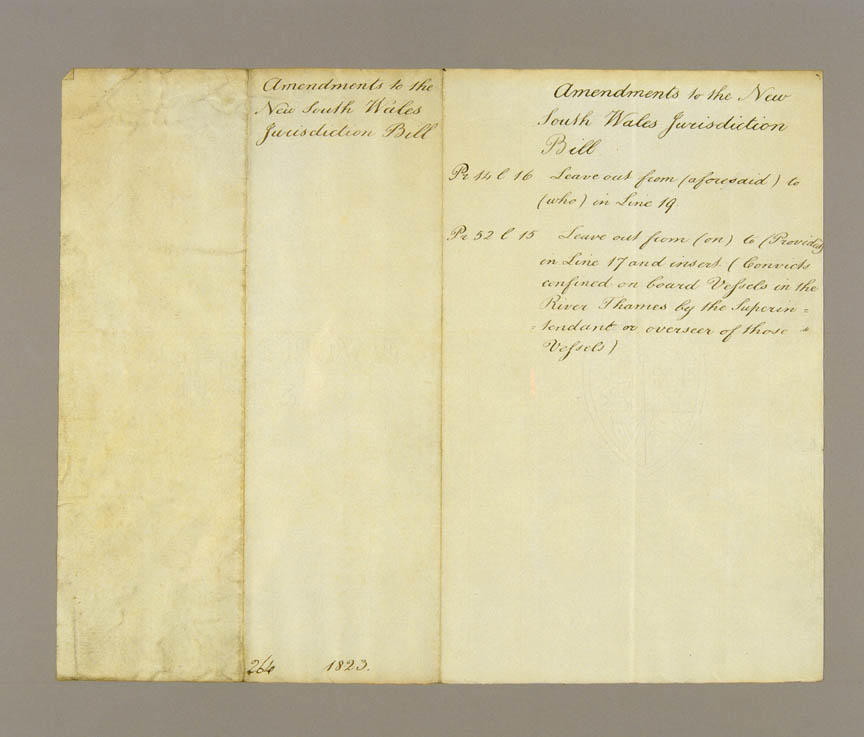 Amendments to the
New South Wales
Jurisdiction Bill
264 1823.
Amendments to the New
South Wales Jurisdiction
Bill
Pr 14 l 16 Leave out from (aforesaid) to
(who) in Line 19
Pr 52 l 15 Leave out from (on) to (Provided)
in Line 17 and insert (Convicts
confined on board Vessels in the
River Thames by the Superin=
=tendant or overseer of those "
Vessels)